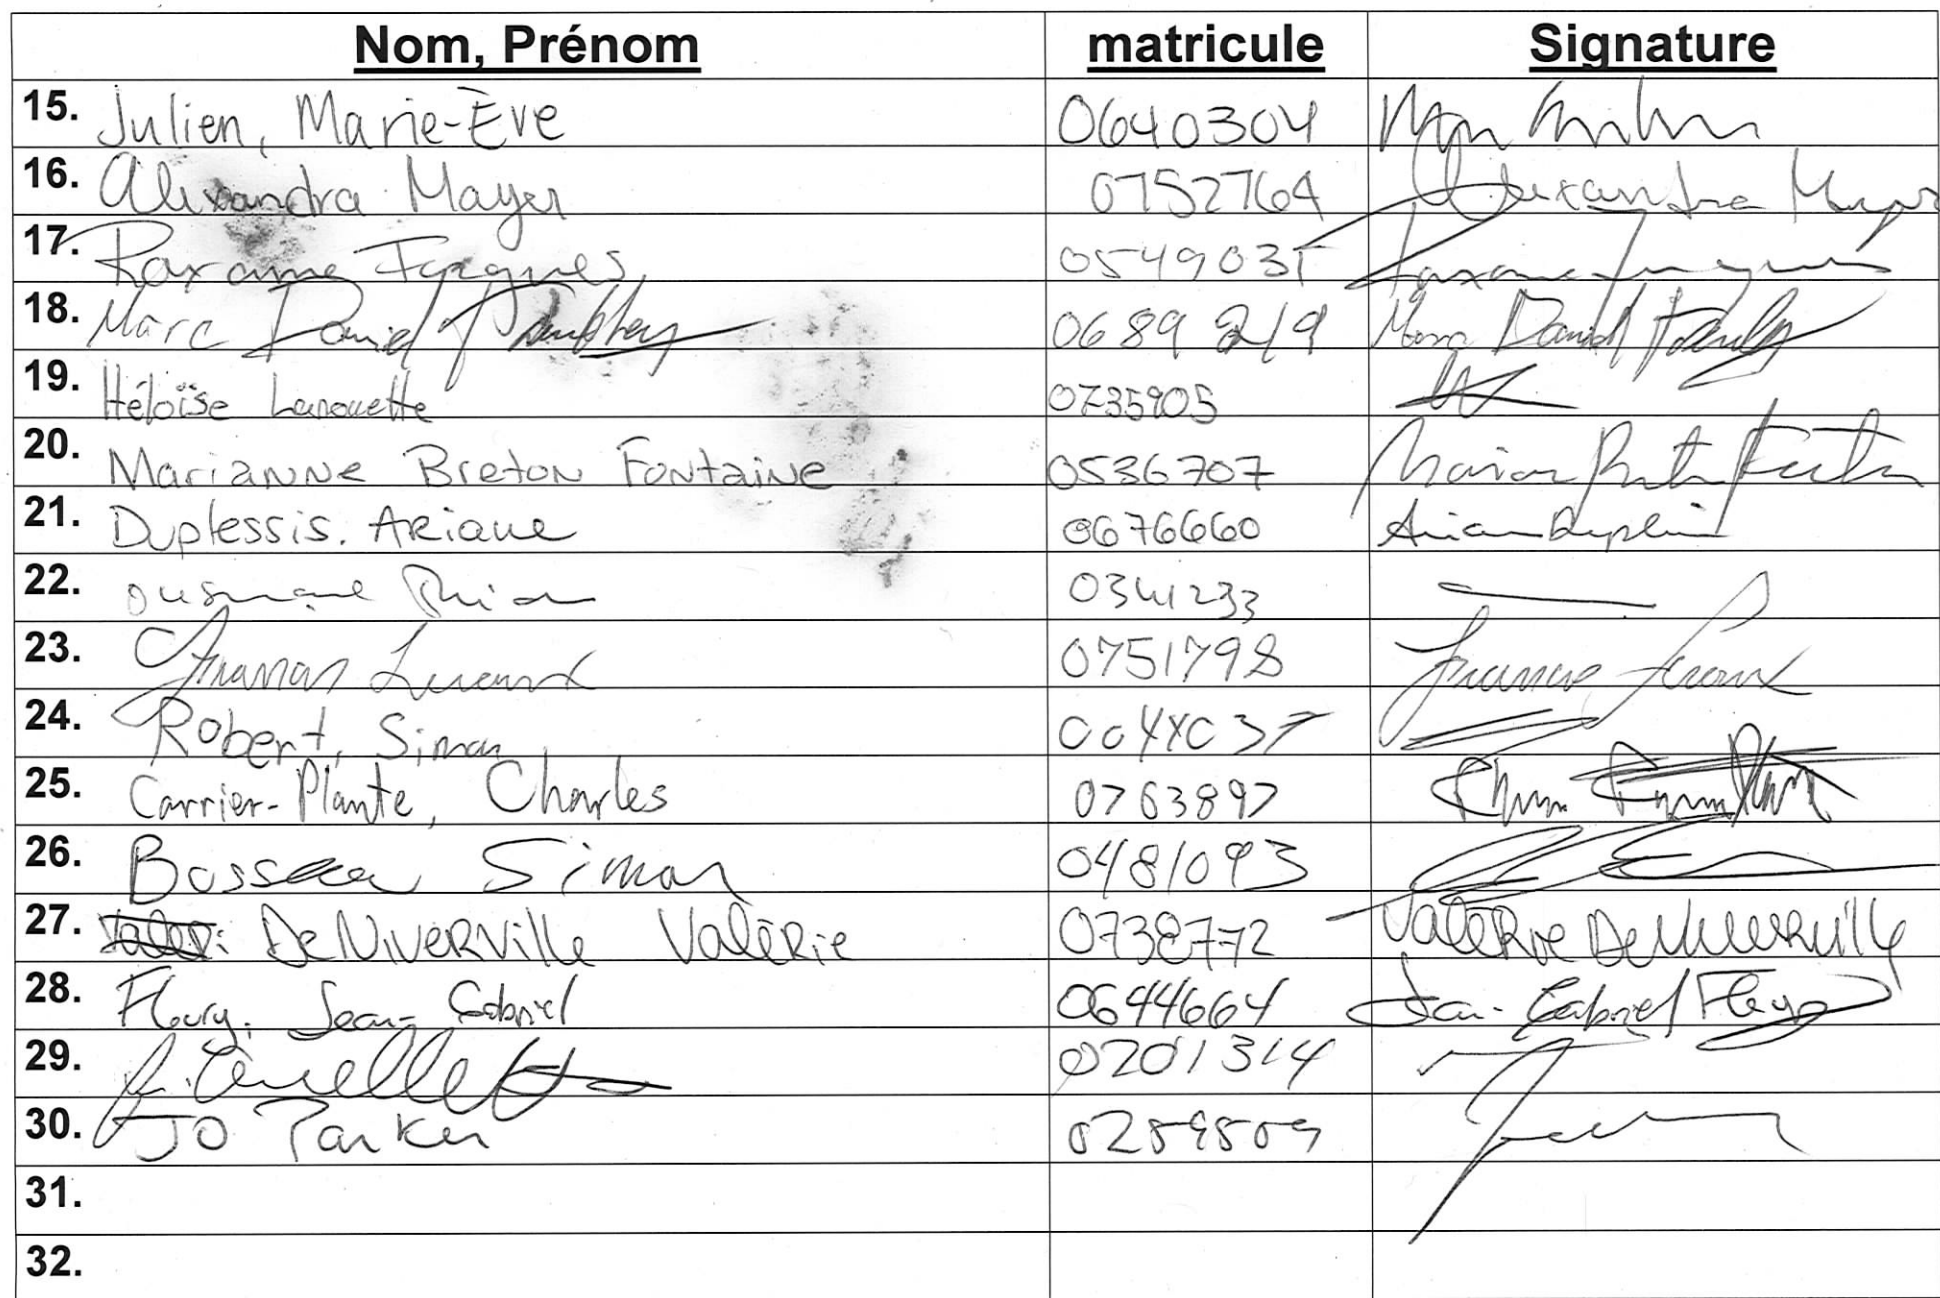 Nom, Prénom matricule Signature
15. Julien, Marie-Ève 0640304
16. Alexandra Mayer 0752764 Alexandra Mayer
17. Roxanne 054903
18. Marc David 0689219 Marc David
19. Héloïse Lanouette 0735905
20. Marianne Breton Fontaine 0536707
21. Duplessis. Ariane 0676660
22. Ousmane
23. Francis Leroux 0751798 Francis Leroux
24. Robert, Simon
25. Carrier-Plante, Charles 0763897
26. Simon 0481093
27. DeNiverville Valérie 0738772 Valérie DeNiverville
28. Fleury, Jean-Gabriel 0644664 Jean-Gabriel Fleury
29. Ouellette 0201314
30. Jo Parker 0259509
31.
32.